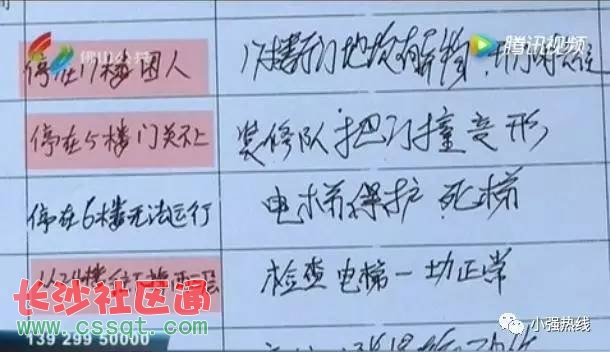 佛山公共
腾讯视频
停在17楼困人
17楼开门地坎有异物
停在5楼门关不上
装修队把门撞变形
停在6楼无法运行
电梯保护 死梯
从24楼
检查电梯一切正常
长沙社区通
www.cssqt.com
139 299 50000
小强热线